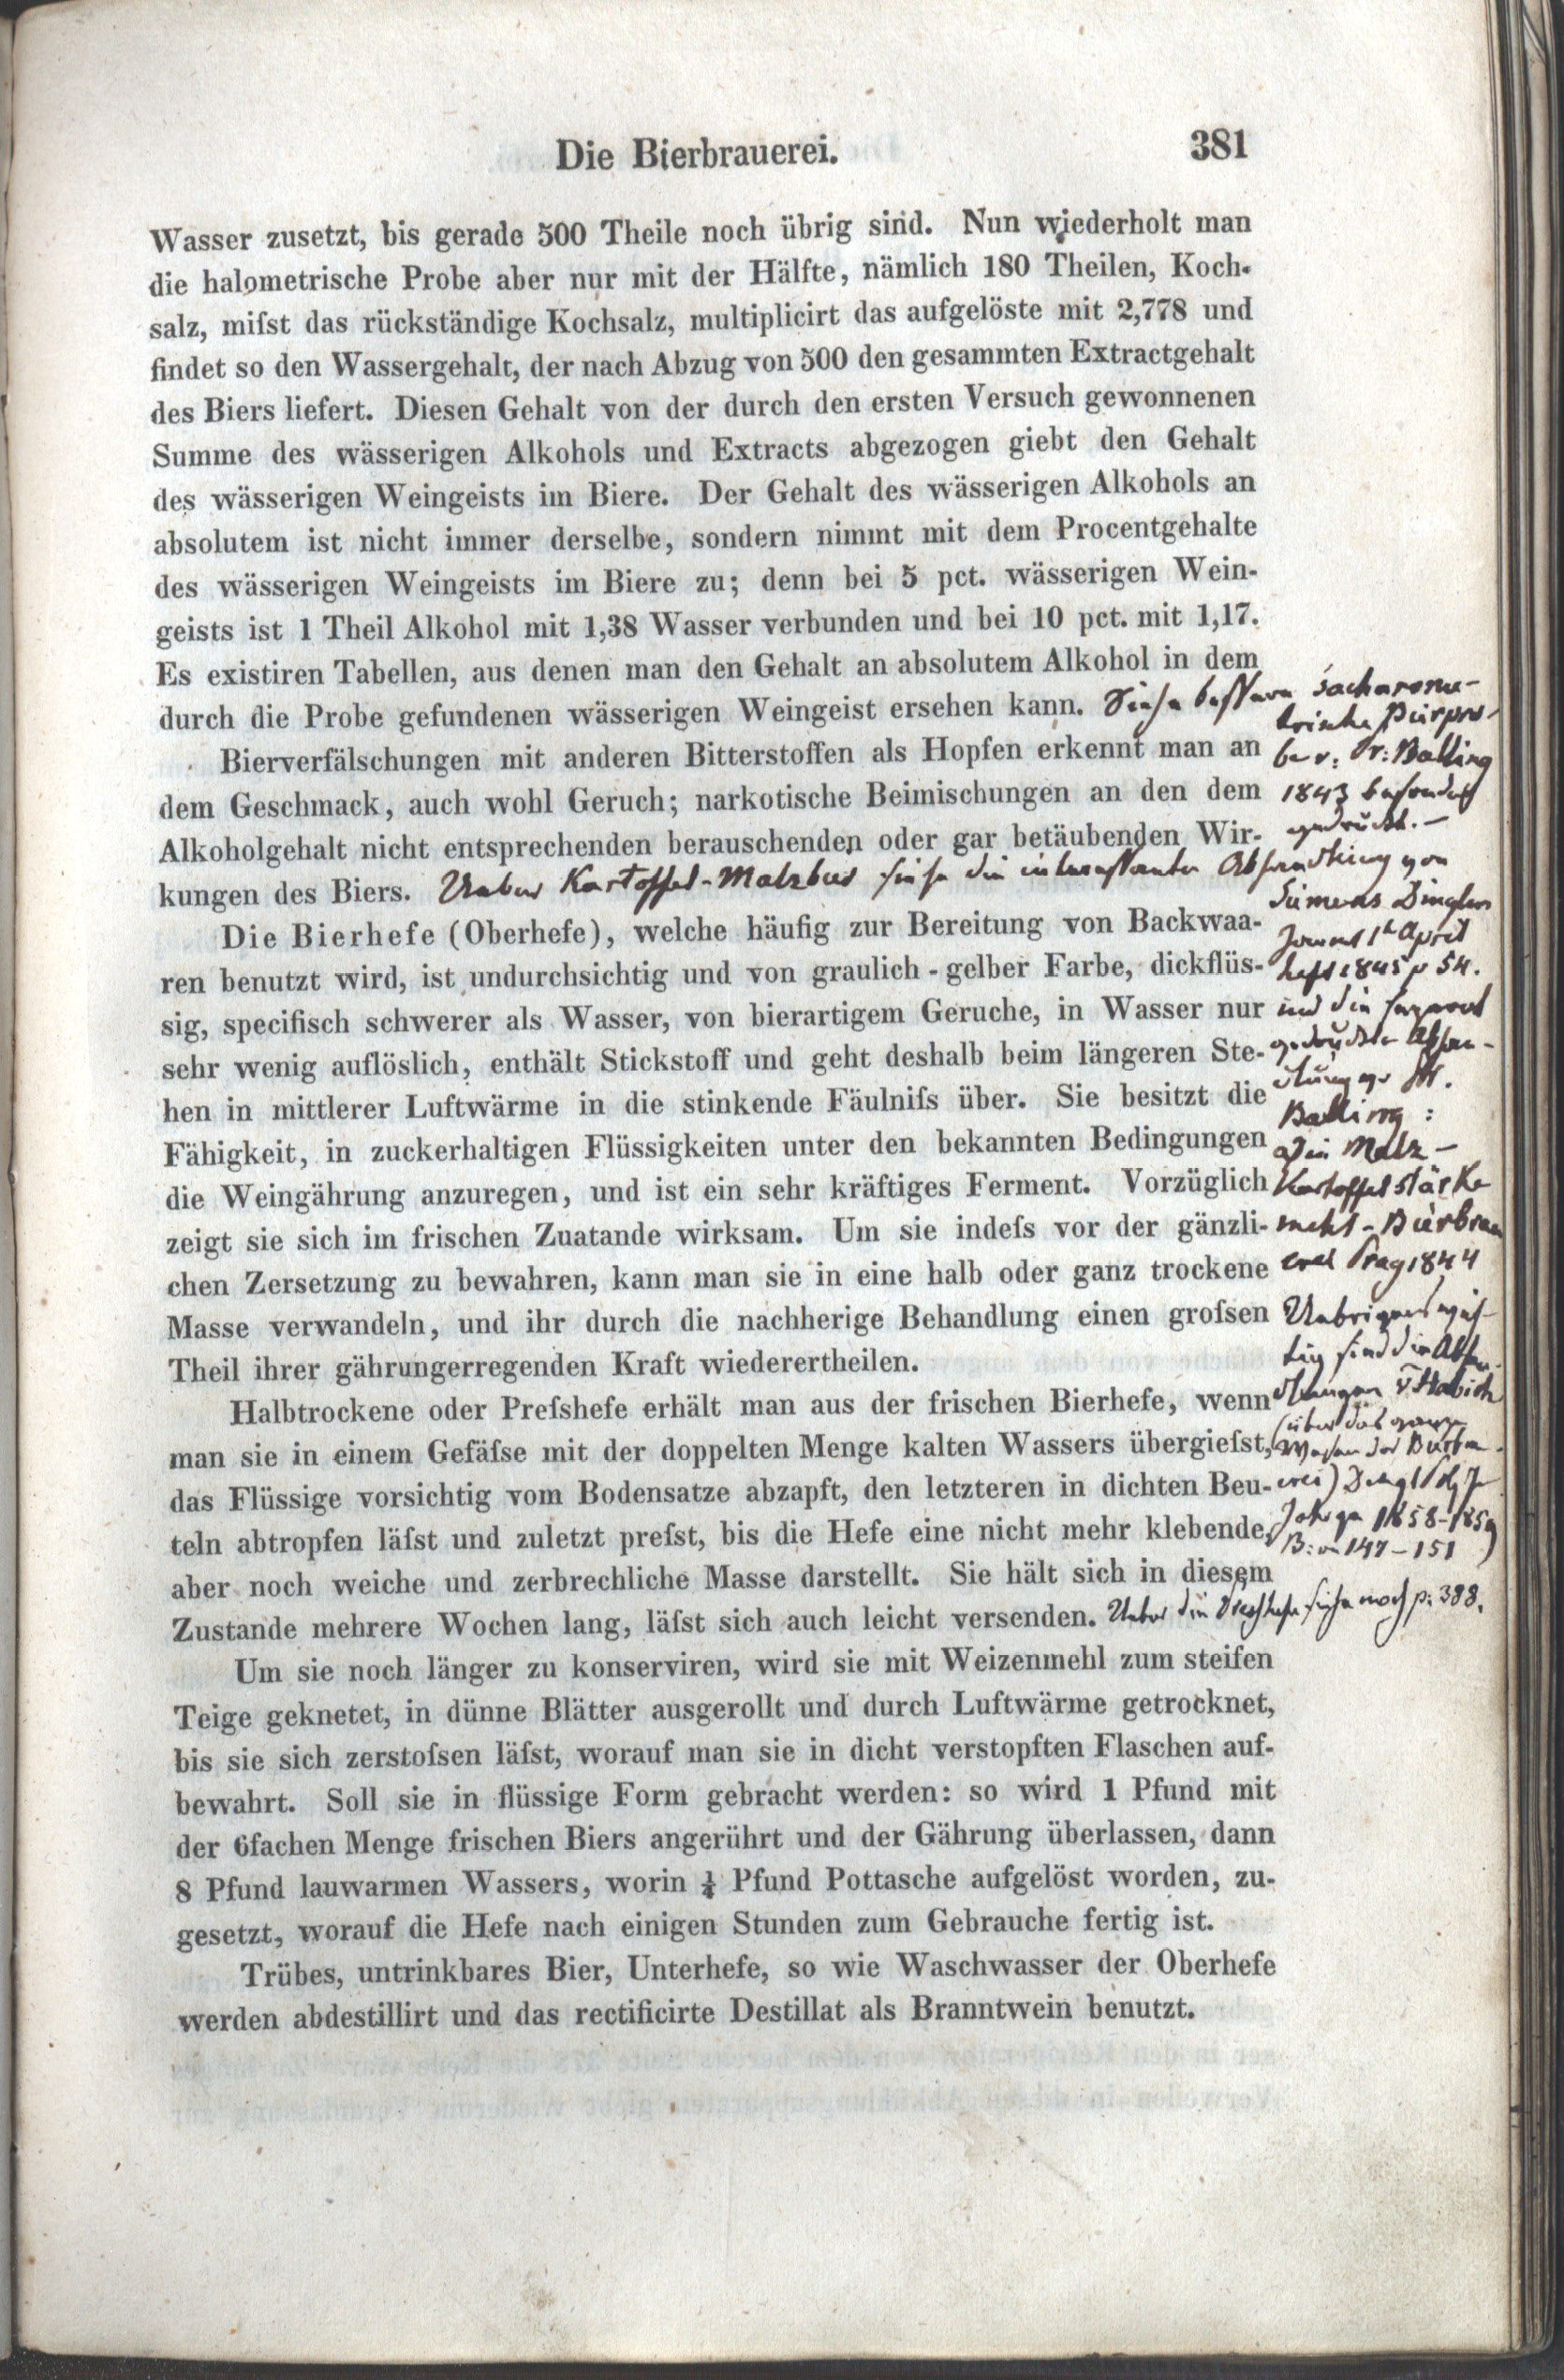 Die Bierbrauerei.
381
Wasser zusetzt, bis gerade 500 Theile noch übrig sind. Nun wiederholt man
die halometrische Probe aber nur mit der Hälfte, nämlich 180 Theilen, Koch-
salz, miſst das rückständige Kochsalz, multiplicirt das aufgelöste mit 2,778 und
findet so den Wassergehalt, der nach Abzug von 500 den gesammten Extractgehalt
des Biers liefert. Diesen Gehalt von der durch den ersten Versuch gewonnenen
Summe des wässerigen Alkohols und Extracts abgezogen giebt den Gehalt
des wässerigen Weingeists im Biere. Der Gehalt des wässerigen Alkohols an
absolutem ist nicht immer derselbe, sondern nimmt mit dem Procentgehalte
des wässerigen Weingeists im Biere zu; denn bei 5 pct. wässerigen Wein-
geists ist 1 Theil Alkohol mit 1,38 Wasser verbunden und bei 10 pct. mit 1,17.
Es existiren Tabellen, aus denen man den Gehalt an absolutem Alkohol in dem
durch die Probe gefundenen wässerigen Weingeist ersehen kann.
Siehe sacharome-
trische Bierpro-
be v: Pr: Balling
1843 besonders
gedruckt. -
Bierverfälschungen mit anderen Bitterstoffen als Hopfen erkennt man an
dem Geschmack, auch wohl Geruch; narkotische Beimischungen an den dem
Alkoholgehalt nicht entsprechenden berauschenden oder gar betäubenden Wir-
kungen des Biers.
Ueber Kartoffel-Malzbier siehe die interessante Abhandlung von
Siemens Dinglers
Journal 1t April
heft 1845 p 54.
und die separat
gedruckte Abhan-
dlung v. Pr.
Balling:
Die Malz-
Kartoffelstärke
mehl-Bierbrau
erei Prag 1844
Uebrigens wich-
tig sind die Abhan-
dlungen v Habich
(über das ganze
Wesen der Bierbrau-
erei) Dingl Pol J
Jahrga 1858-1859
B: v 147-151)
Die Bierhefe (Oberhefe), welche häufig zur Bereitung von Backwaa-
ren benutzt wird, ist undurchsichtig und von graulich-gelber Farbe, dickflüs-
sig, specifisch schwerer als Wasser, von bierartigem Geruche, in Wasser nur
sehr wenig auflöslich, enthält Stickstoff und geht deshalb beim längeren Ste-
hen in mittlerer Luftwärme in die stinkende Fäulniſs über. Sie besitzt die
Fähigkeit, in zuckerhaltigen Flüssigkeiten unter den bekannten Bedingungen
die Weingährung anzuregen, und ist ein sehr kräftiges Ferment. Vorzüglich
zeigt sie sich im frischen Zuatande wirksam. Um sie indeſs vor der gänzli-
chen Zersetzung zu bewahren, kann man sie in eine halb oder ganz trockene
Masse verwandeln, und ihr durch die nachherige Behandlung einen groſsen
Theil ihrer gährungerregenden Kraft wiederertheilen.
Halbtrockene oder Preſshefe erhält man aus der frischen Bierhefe, wenn
man sie in einem Gefäſse mit der doppelten Menge kalten Wassers übergieſst,
das Flüssige vorsichtig vom Bodensatze abzapft, den letzteren in dichten Beu-
teln abtropfen läſst und zuletzt preſst, bis die Hefe eine nicht mehr klebende,
aber noch weiche und zerbrechliche Masse darstellt. Sie hält sich in diesem
Zustande mehrere Wochen lang, läſst sich auch leicht versenden.
Ueber die Presshefe siehe noch p: 388.
Um sie noch länger zu konserviren, wird sie mit Weizenmehl zum steifen
Teige geknetet, in dünne Blätter ausgerollt und durch Luftwärme getrocknet,
bis sie sich zerstoſsen läſst, worauf man sie in dicht verstopften Flaschen auf-
bewahrt. Soll sie in flüssige Form gebracht werden: so wird 1 Pfund mit
der 6fachen Menge frischen Biers angerührt und der Gährung überlassen, dann
8 Pfund lauwarmen Wassers, worin ¼ Pfund Pottasche aufgelöst worden, zu-
gesetzt, worauf die Hefe nach einigen Stunden zum Gebrauche fertig ist.
Trübes, untrinkbares Bier, Unterhefe, so wie Waschwasser der Oberhefe
werden abdestillirt und das rectificirte Destillat als Branntwein benutzt.